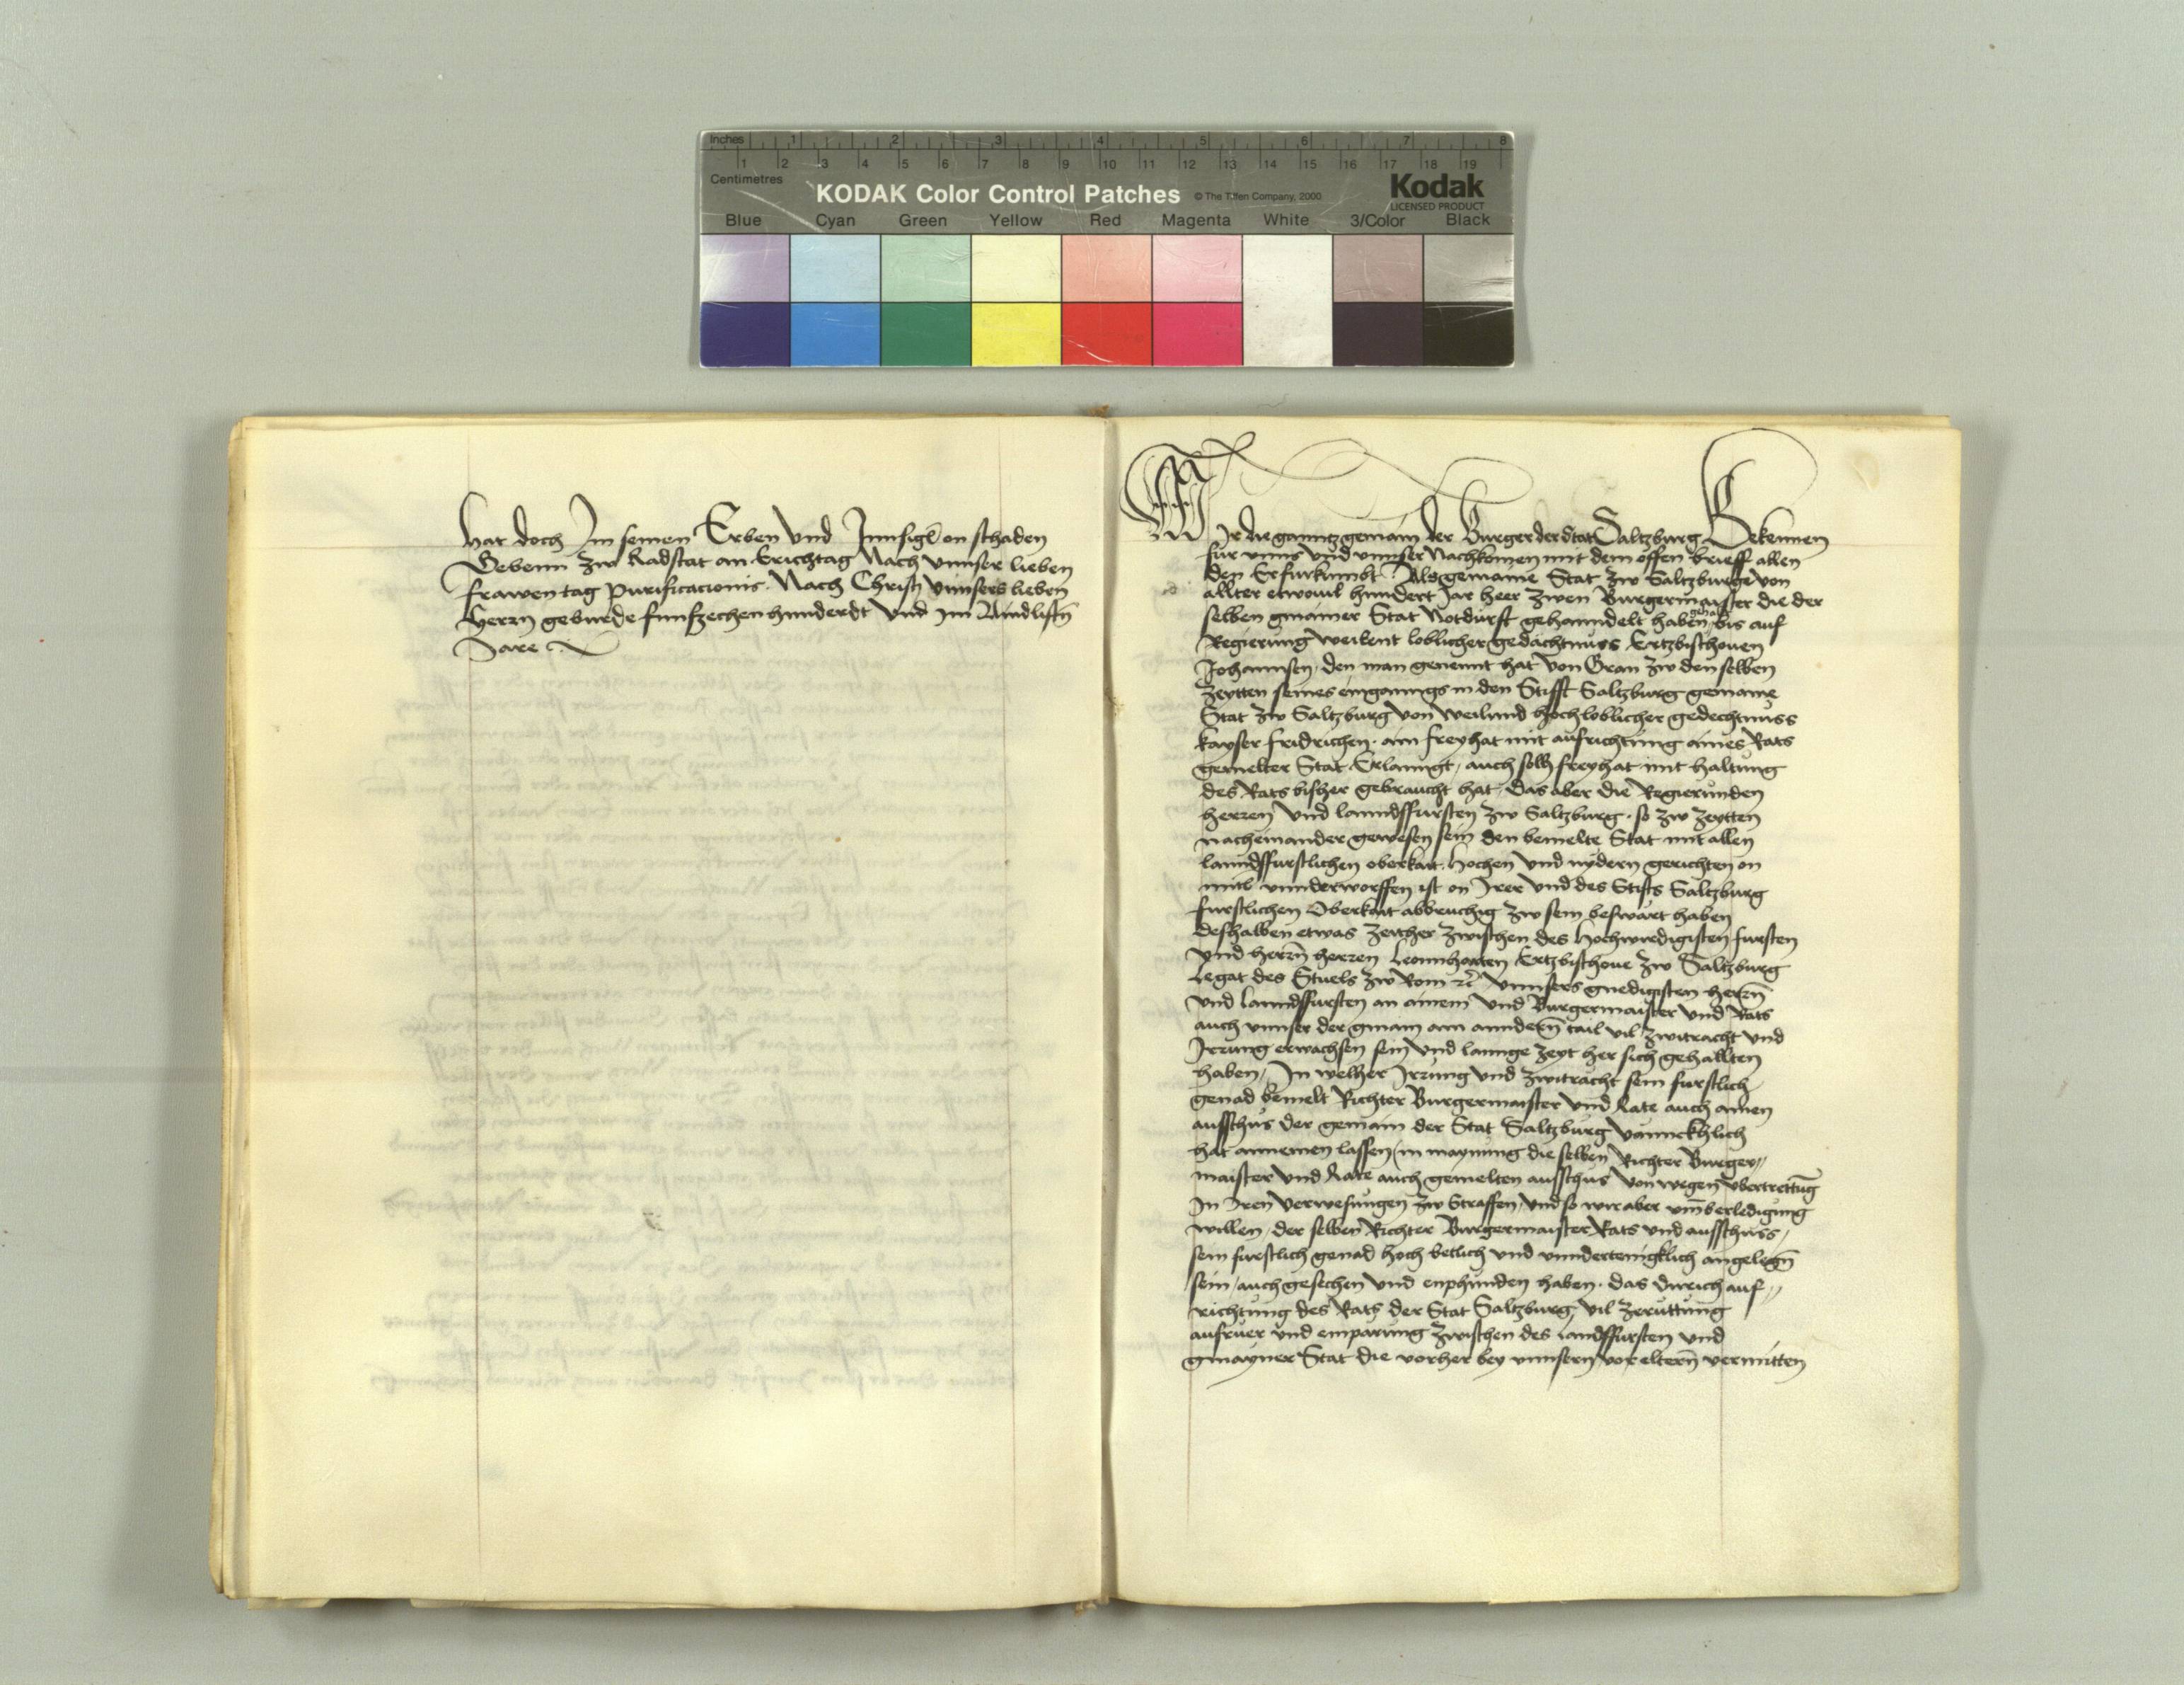 Inches 1 2 3 4 5 6 7 8
1 2 3 4 5 6 7 8 9 10 11 12 13 14 15 16 17 18 19
Centimetres
KODAK Color Control Patches © The Tiffen Company, 2000 Kodak
LICENSED PRODUCT
Blue Cyan Green Yellow Red Magenta White 3/Color Black
hat doch Im seinen Erben vnd Innsigl on schaden
Gebenn zw Radstat an Erichtag Nach vnnser lieben
frawen tag purificacionis. Nach Christj vnnsers lieben
Herrn geburde funfzechenhunderdt vnd im Aindlefftn
Jare
Wir die ganntz gemain der Burger der Stat Saltzburg Bekennen
fur vnns vnd vnnser Nachkomen mit dem offen brieff allen
den Er furkumbt. Als gemaine Stat zw Saltzburg von
allter ewoul hundert Jar heer zwen Burgermaister die der
selben gmainer Stat Notdurft gehanndelt haben bis auf
Regierung weilent loblicher gedachtnuss Ertzbischouen
Johannsen den man genennt hat von Gran zw den selben
Zeytten seines einganngs in den Stifft Saltzburg gemaine
Stat zw Saltzburg von weilund hochloblicher gedechtnuss
kayser fridrichen. ain freyhat mit aufrichtung aines Rats
gemelter Stat Erlanngt, auch solh freyhat mit haltung
des Rats bisher gebraucht hat, das aber die Regierunden
herren vnd lanndsfursten zw Saltzburg. so zw zeytten
nacheinander gewesen sein den bemelte Stat mit allen
lanndsfurstlichen oberkait. hochen vnd nydern gerichten on
mitl vnnderworffen ist on Irer vnd des Stifts Saltzburg
furstlichen Oberkait abbruchig zw sein beswart haben
deshalben etwas zeither zwischen des hochwirdigisten fursten
vnd herrn herren Leonnharten Ertzbischoue zw Saltzburg
Legat des Stuels zw Rom vnnsers gnedigisten herrn
vnd lanndsfursten an ainem vnd Burgermaister vnd Rats
auch vnnser der gmain am anndern tail vil zwitracht vnd
Irrung erwachsen sein vnd lannge zeyt her sich gehallten
haben, In welher Irrung vnd zwitracht sein furstlich
genad bemelt Richter Burgermaister vnd Rate auch ainen
ausschus der gemain der Stat Saltzburg vanncklich
hat annemen lassen, in maynung die selben Richter Burger,,
maister vnd Rate auch gemelten ausschus von wegen vbertrettūg
In Iren verwesungen zw Straffen, vnd so wir aber vm̄b erledigung
willen, der selben Richter Burgermaister Rats vnd ausschuss,
sein furstlich genad hoch betlich vnd vnndertenigklich angelegn̄
sein, auch gesechen vnd enphunden haben. das durich auf,,
richtung des Rats der Stat Saltzburg, vil zeruttung
aufruer vnd emparung zwischen des lanndsfursten vnd
gmayner Stat die vorher bey vnnsern vor eltern̄ vermitten